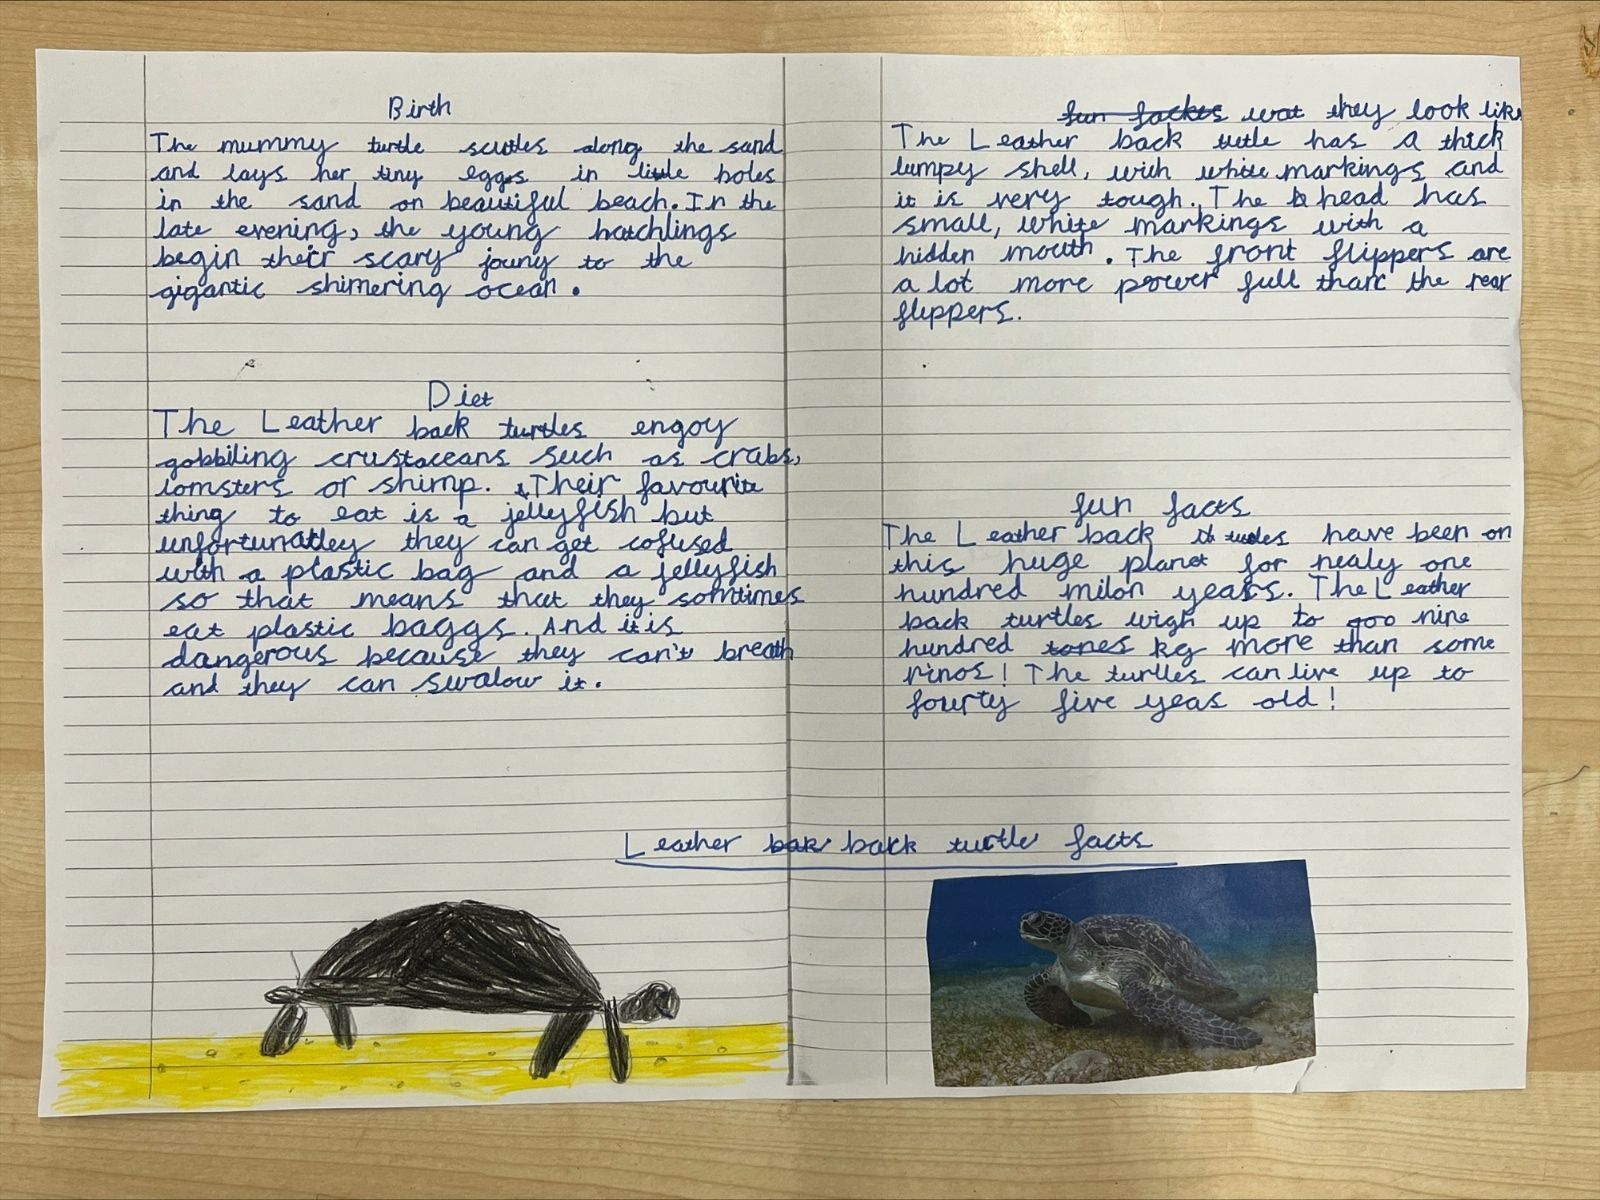 Birth
The mummy turtle scuttles along the sand
and lays her tiny eggs in little holes
in the sand on beautiful beach. In the
late evening, the young hatchlings
begin their scary jouny to the
gigantic shimering ocean.
Diet
The Leather back turtles engoy
gobbiling crustaceans such as crabs,
lomsters or shimp. Their favourite
thing to eat is a jellyfish but
unfortunatley they can get cofused
with a plastic bag and a jellyfish
so that means that they somtimes
eat plastic baggs. And it is
dangerous because they can't breath
and they can swalow it.
fun fackts wat they look like
The Leather back tutle has a thick
lumpy shell, with white markings and
it is very tough. The head has
small, white markings with a
hidden mouth. The front flippers are
a lot more power full than the rear
flippers.
fun facts
The Leather back turtles have been on
this huge planet for nealy one
hundred milon years. The Leather
back turtles wigh up to 900 nine
hundred tones kg more than some
rinos! The turtles can live up to
fourty five yeas old!
Leather bak back turtle facts